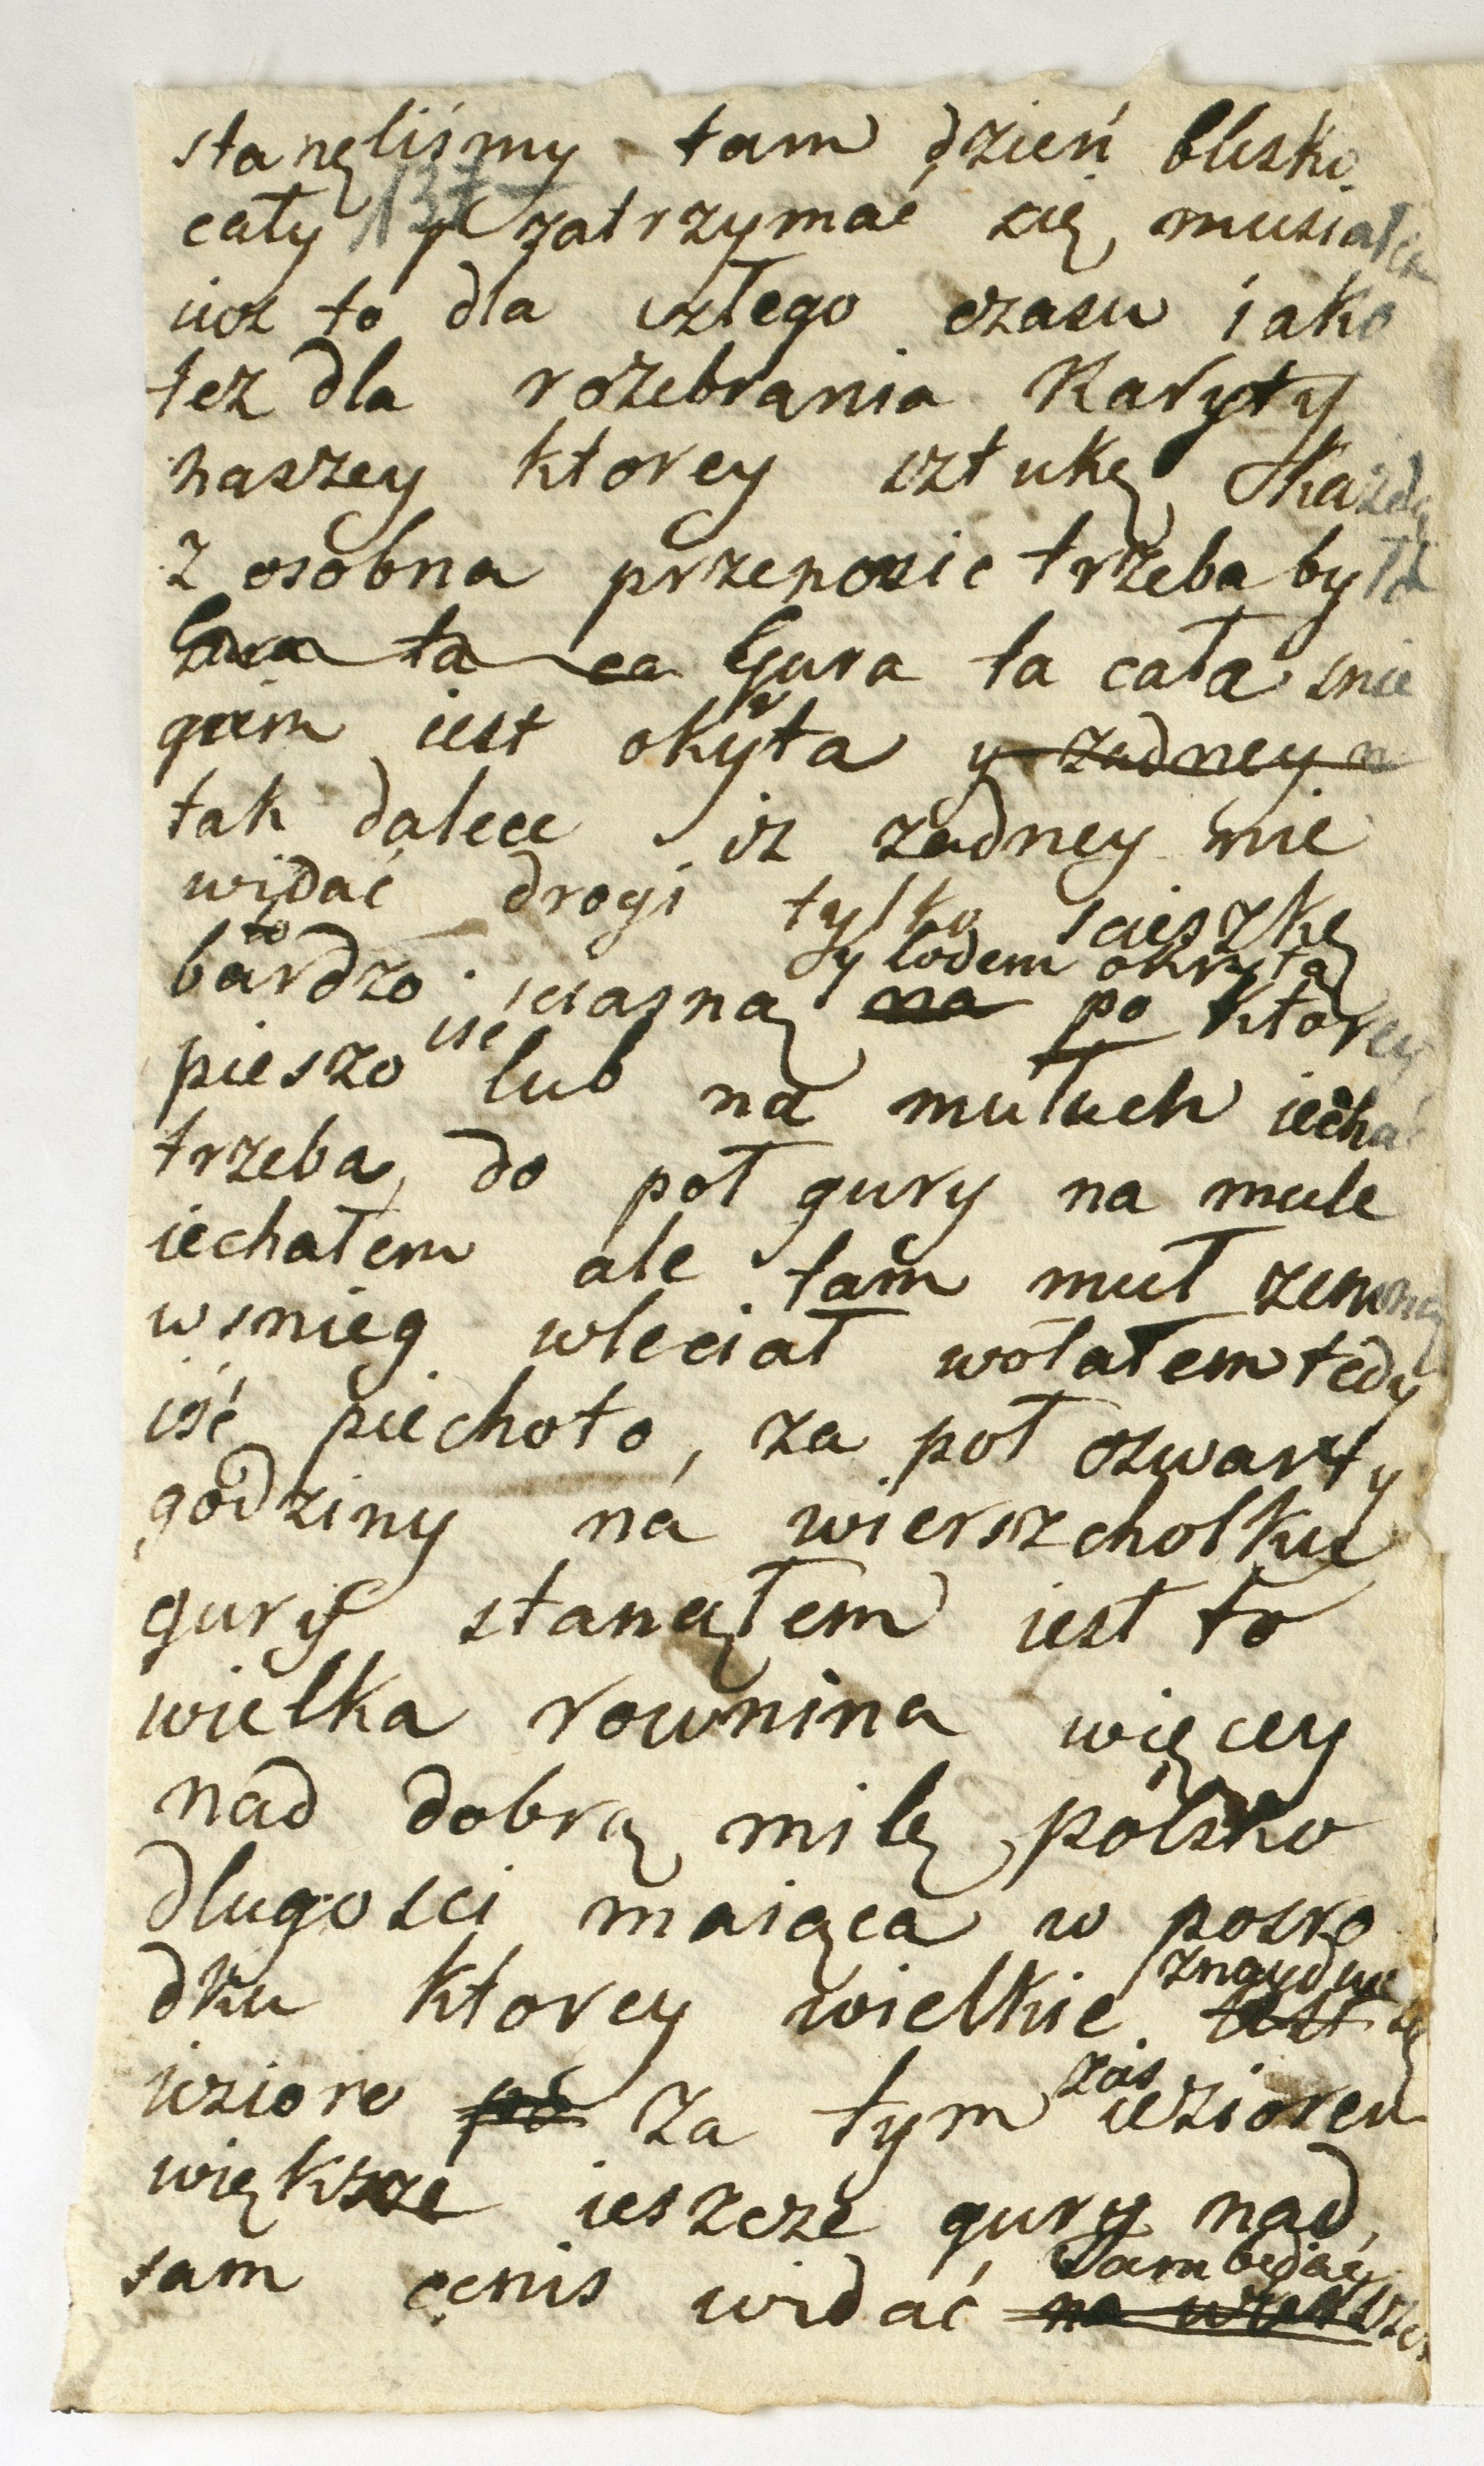 stanęliśmy tam dzień blisko
cały 137 y zatrzymać się musiała
iuż to dla złego czasu iako
tez dla rozebrania Karyty
naszey ktorey sztukę Kazdą
z osobna przenosic trzeba było
Gura ta ca Gura ta cała snie
giem iest okryta y zadney n
tak dalece iz zadney nie
widać drogi tylko scieszkę
bardzo to sciasną na y lodem okrytą po ktorey
pieszo isc lub na mułuch iechać
trzeba, do poł gury na mule
iechałem ale tam muł zemną
w snieg wleciał wolałem tedy
iść piechoto, za poł czwarty
godziny na wierszchołku
gury stanąłem iest to
wielka rownina więcey
nad dobrą milę polsko
dlugosci maiąca w posro
dku ktorey wielkie iest znayduie się
iezioro po za tym zas ieziorem
większe ieszcze gury nad
sam cenis widać na tam będąc